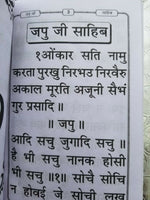 जपु जी साहिब
१ओंकार सति नामु
करता पुरखु निरभउ निरवैरु
अकाल मूरति अजूनी सैभं
गुर प्रसादि ॥
॥ जपु ॥
आदि सचु जुगादि सचु ॥
है भी सचु नानक होसी
भी सचु ॥१॥ सोचै सोचि
न होवई जे सोची लख